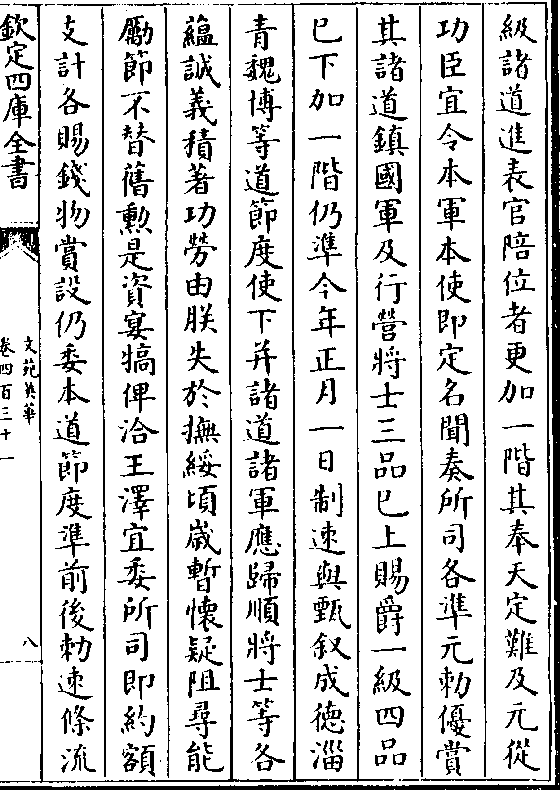 級諸道進表官陪位者更加一階其奉天定難及元從
功臣宜令本軍本使即定名聞奏所司各準元勅優賞
其諸道鎮國軍及行營將士三品已上賜爵一級四品
已下加一階仍準今年正月一日制速與甄叙成德淄
青魏博等道節度使下并諸道諸軍應歸順將士等各
藴誠義積著功勞由朕失於撫綏頃嵗暫懷疑阻尋能
勵節不替舊勲是資宴犒俾洽王澤宜委所司即約額
支計各賜錢物賞設仍委本道節度準前後勅速條流
欽定四庫全書
文苑英華
卷四百三十一
八